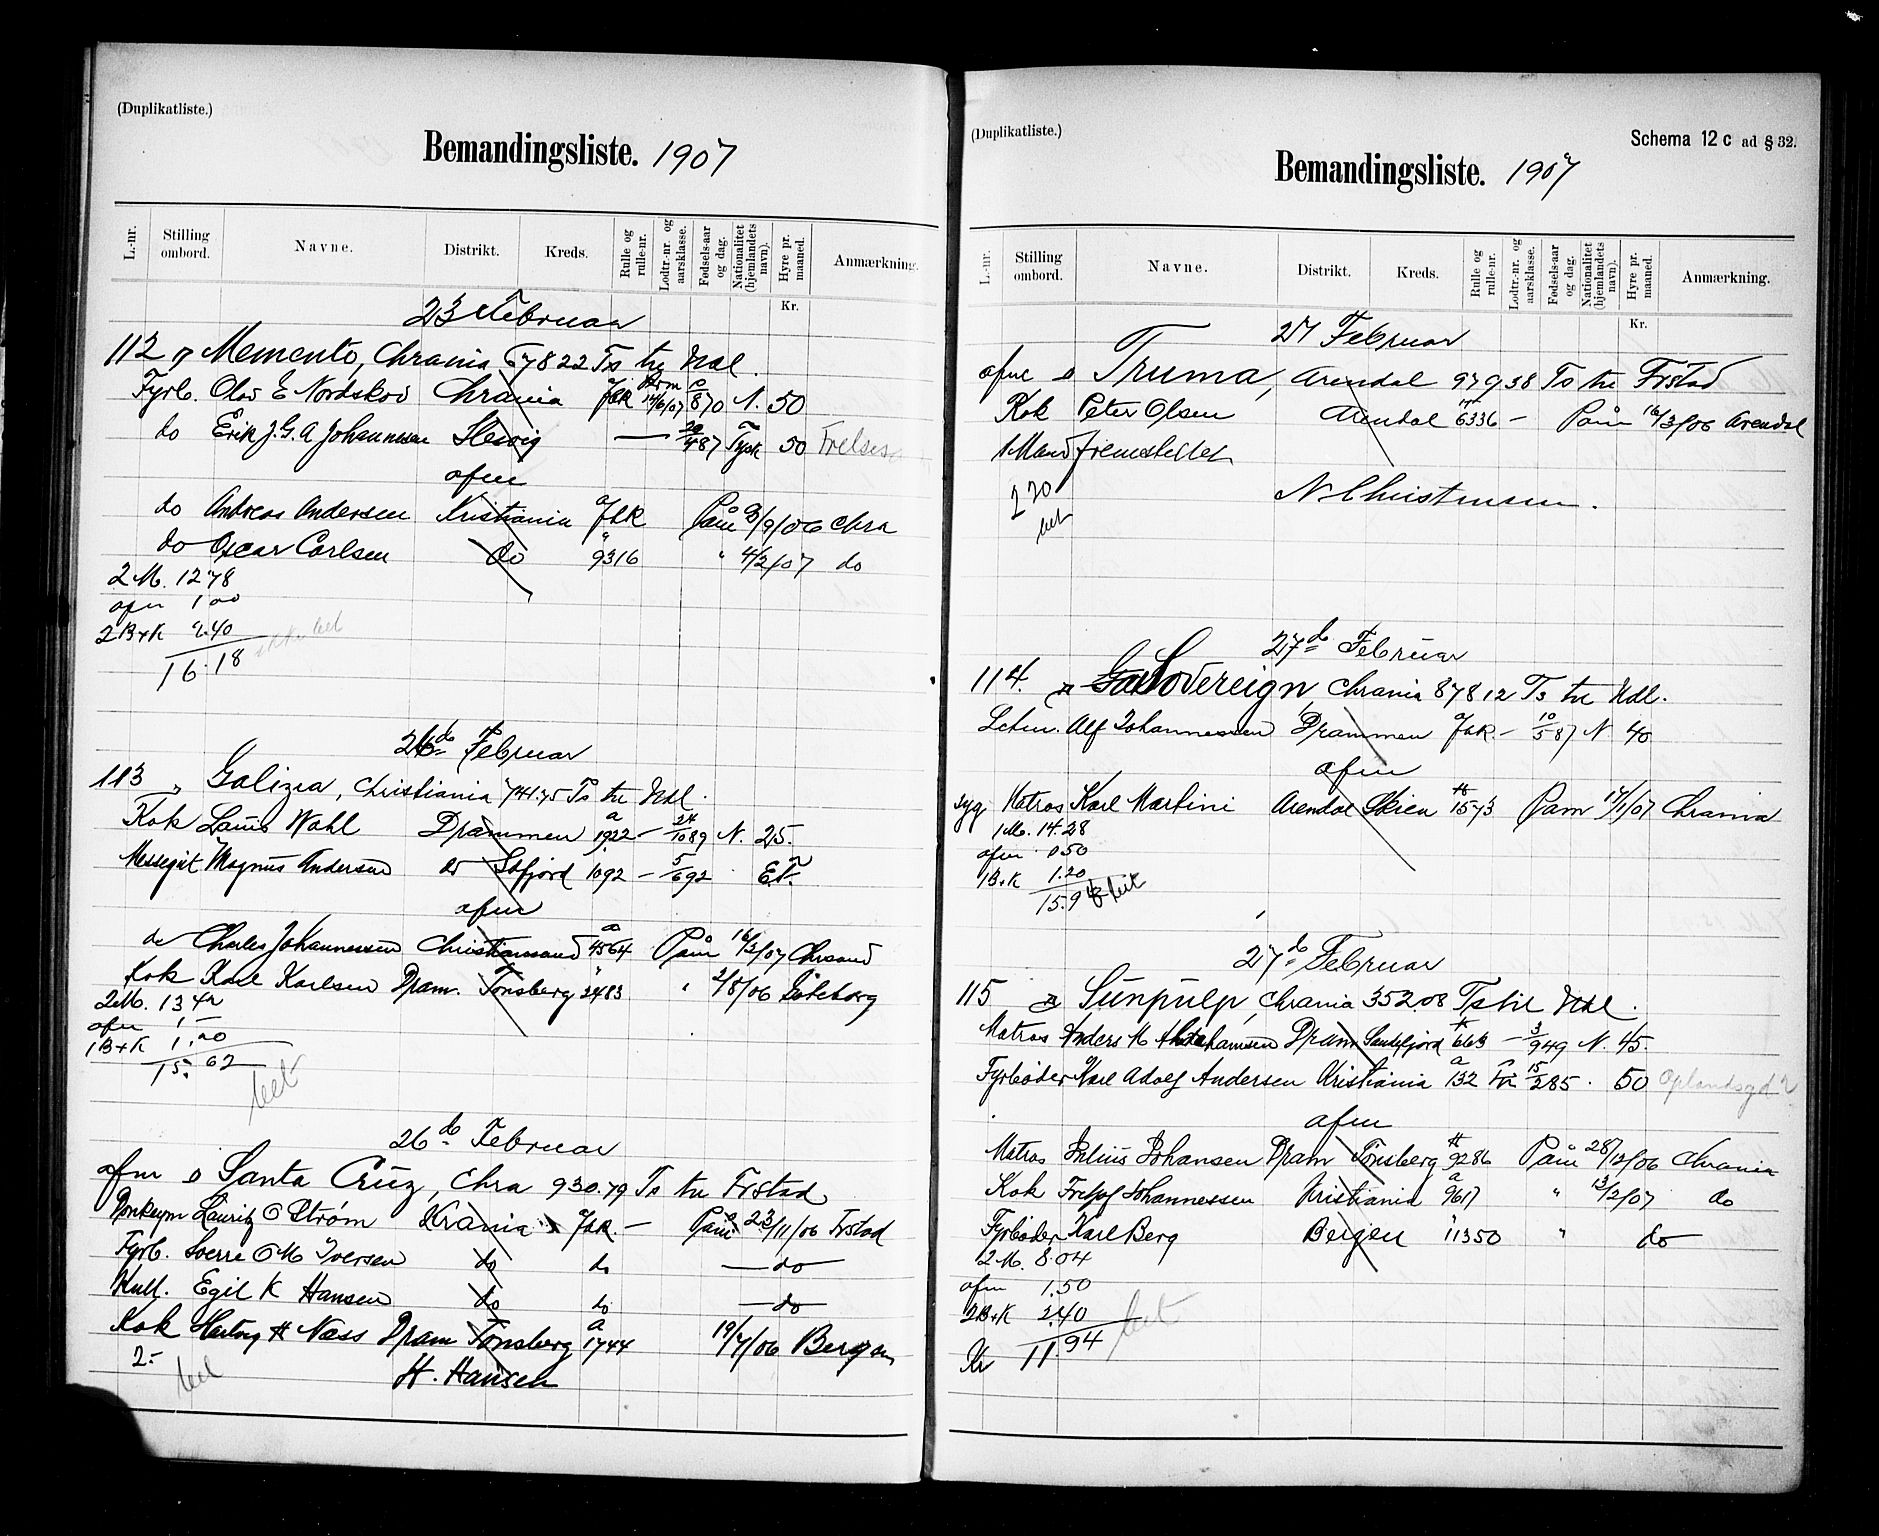 (Duplikatliste.)
Bemandingsliste. 1907
L.-nr.
Stilling ombord.
Navne.
Distrikt.
Kreds.
Rulle og rulle-nr.
Lodtr.-nr. og aarsklasse.
Fødsels-aar og dag.
Nationalitet (hjemlandets navn).
Hyre pr. maaned.
Anmærkning.
Kr.
23 Februar
112 Memento, Chrania 678 22 Ts til Udl.
Fyrb. Olav E Nordskov Chrania 14/6/07 870 N. 50
do Erik J. G. A Johannesen Slesvig — 487 Tysk 50
afm
do Andreas Andersen Kristiania Påm /9/06 Chra
do Oscar Carlsen do 9316 " 4/2/07 do
2 M. 12 78
afm 1 00
2 B+K 2.40
16.18
26de Februar
113 " Galizia, Christiania 741.75 Ts til Udl.
Kok Lauis Wahl Drammen a 1922 — 24/1089 N. 25.
Messegut Magnus Andersen do 1092 — 5/692
afm
do Charles Johannessen Christiansand 4564 Påm 16/2/07 Chrsand
Kok Karl Karlsen Dram. Tønsberg 2483 " 2/8/06 Göteborg
2 M. 13 42
afm 1 —
1 B+K 1.20
15.62
bet
26de Februar
afm D Santa Cruz, Chra 930.79 Ts til Frstad
Donkeym Lauritz O Strøm Krania — Påm 23/11/06 Frstad
Fyrb. Sverre O M Iversen do do — do —
Kull. Egil K Hansen do do — do
Kok Hartvig H Næss Dram Tønsberg a 1744 19/7/06 Bergen
2.-
bet
H. Hansen
(Duplikatliste.)
Schema 12 c ad § 32.
Bemandingsliste. 1907
L.-nr.
Stilling ombord.
Navne.
Distrikt.
Kreds.
Rulle og rulle-nr.
Lodtr.-nr. og aarsklasse.
Fødsels-aar og dag.
Nationalitet (hjemlandets navn).
Hyre pr. maaned.
Anmærkning.
Kr.
27 Februar
afm D Truma, Arendal 979 38 Ts til Frstad
Kok Peter Olsen Arendal 6336 — Påm 16/3/06 Arendal
1 Mand fremstillet
2 20
bet
N Christensen.
27de Februar
114. D Sovereign, Chrania 878 12 Ts til Udl.
Letm. Alf Johannessen Drammen — 10/587 N 40
afm
syg Matros Karl Martini Arendal Skien 1573 Påm 17/1/07 Chrania
1 M. 14.28
afm 0 50
1 B+K 1.20
15.98
bet
27de Februar
115 D Sunpulp, Chrania 352.08 Ts til Udl.
Matros Anders M Abrahamsen Dram Sandefjord 663 — 3/949 N. 45.
Fyrbøder Karl Adolf Andersen Kristiania a 132 15/285 . 50
afm
Matros Julius Johansen Dram Tønsberg 9286 Påm 28/12/06 Chrania
Kok Fritjof Johannessen Kristiania a 9617 " 13/2/07 do
Fyrbøder Karl Berg Bergen " 11350 " do
2 M. 8.04
afm 1.50
2 B+K 2.40
Kr 11.94
bet